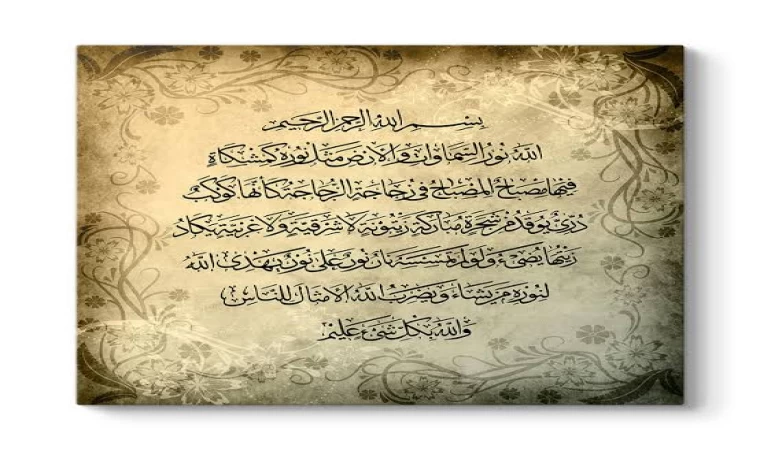 بسم الله الرحمن الرحيم
الله نور السماوات والأرض مثل نوره كمشكاة
فيها مصباح المصباح في زجاجة الزجاجة كأنها كوكب
دري يوقد من شجرة مباركة زيتونة لا شرقية ولا غربية يكاد
زيتها يضيء ولو لم تمسسه نار نور على نور يهدي الله
لنوره من يشاء ويضرب الله الأمثال للناس
والله بكل شيء عليم